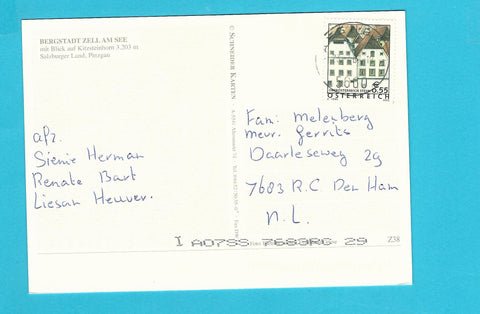 BERGSTADT ZELL AM SEE
mit Blick auf Kitzsteinhorn 3.203 m
Salzburger Land, Pinzgau
© SCHNEIDER KARTEN
0,55
ÖSTERREICH
5600
afz.
Sienie Herman
Renate Bart
Liesan Heuver.
Fam: Melenberg
mevr. Gerrits
Daarleseweg 29
7683 R.C Den Ham
N.L.
I A07SS 7683RC 29
Z38